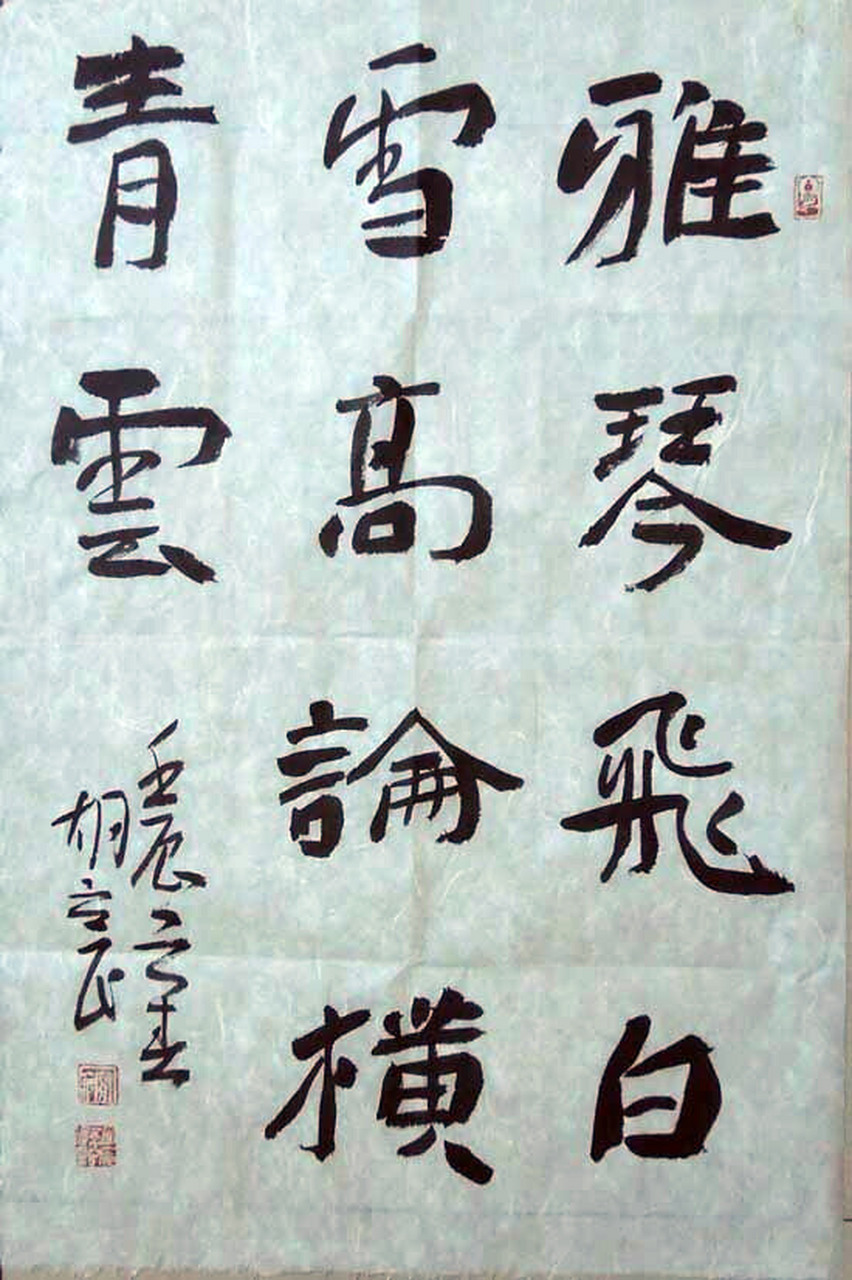 雅琴飛白
雪高論橫
青雲
壬辰之春
胡立民